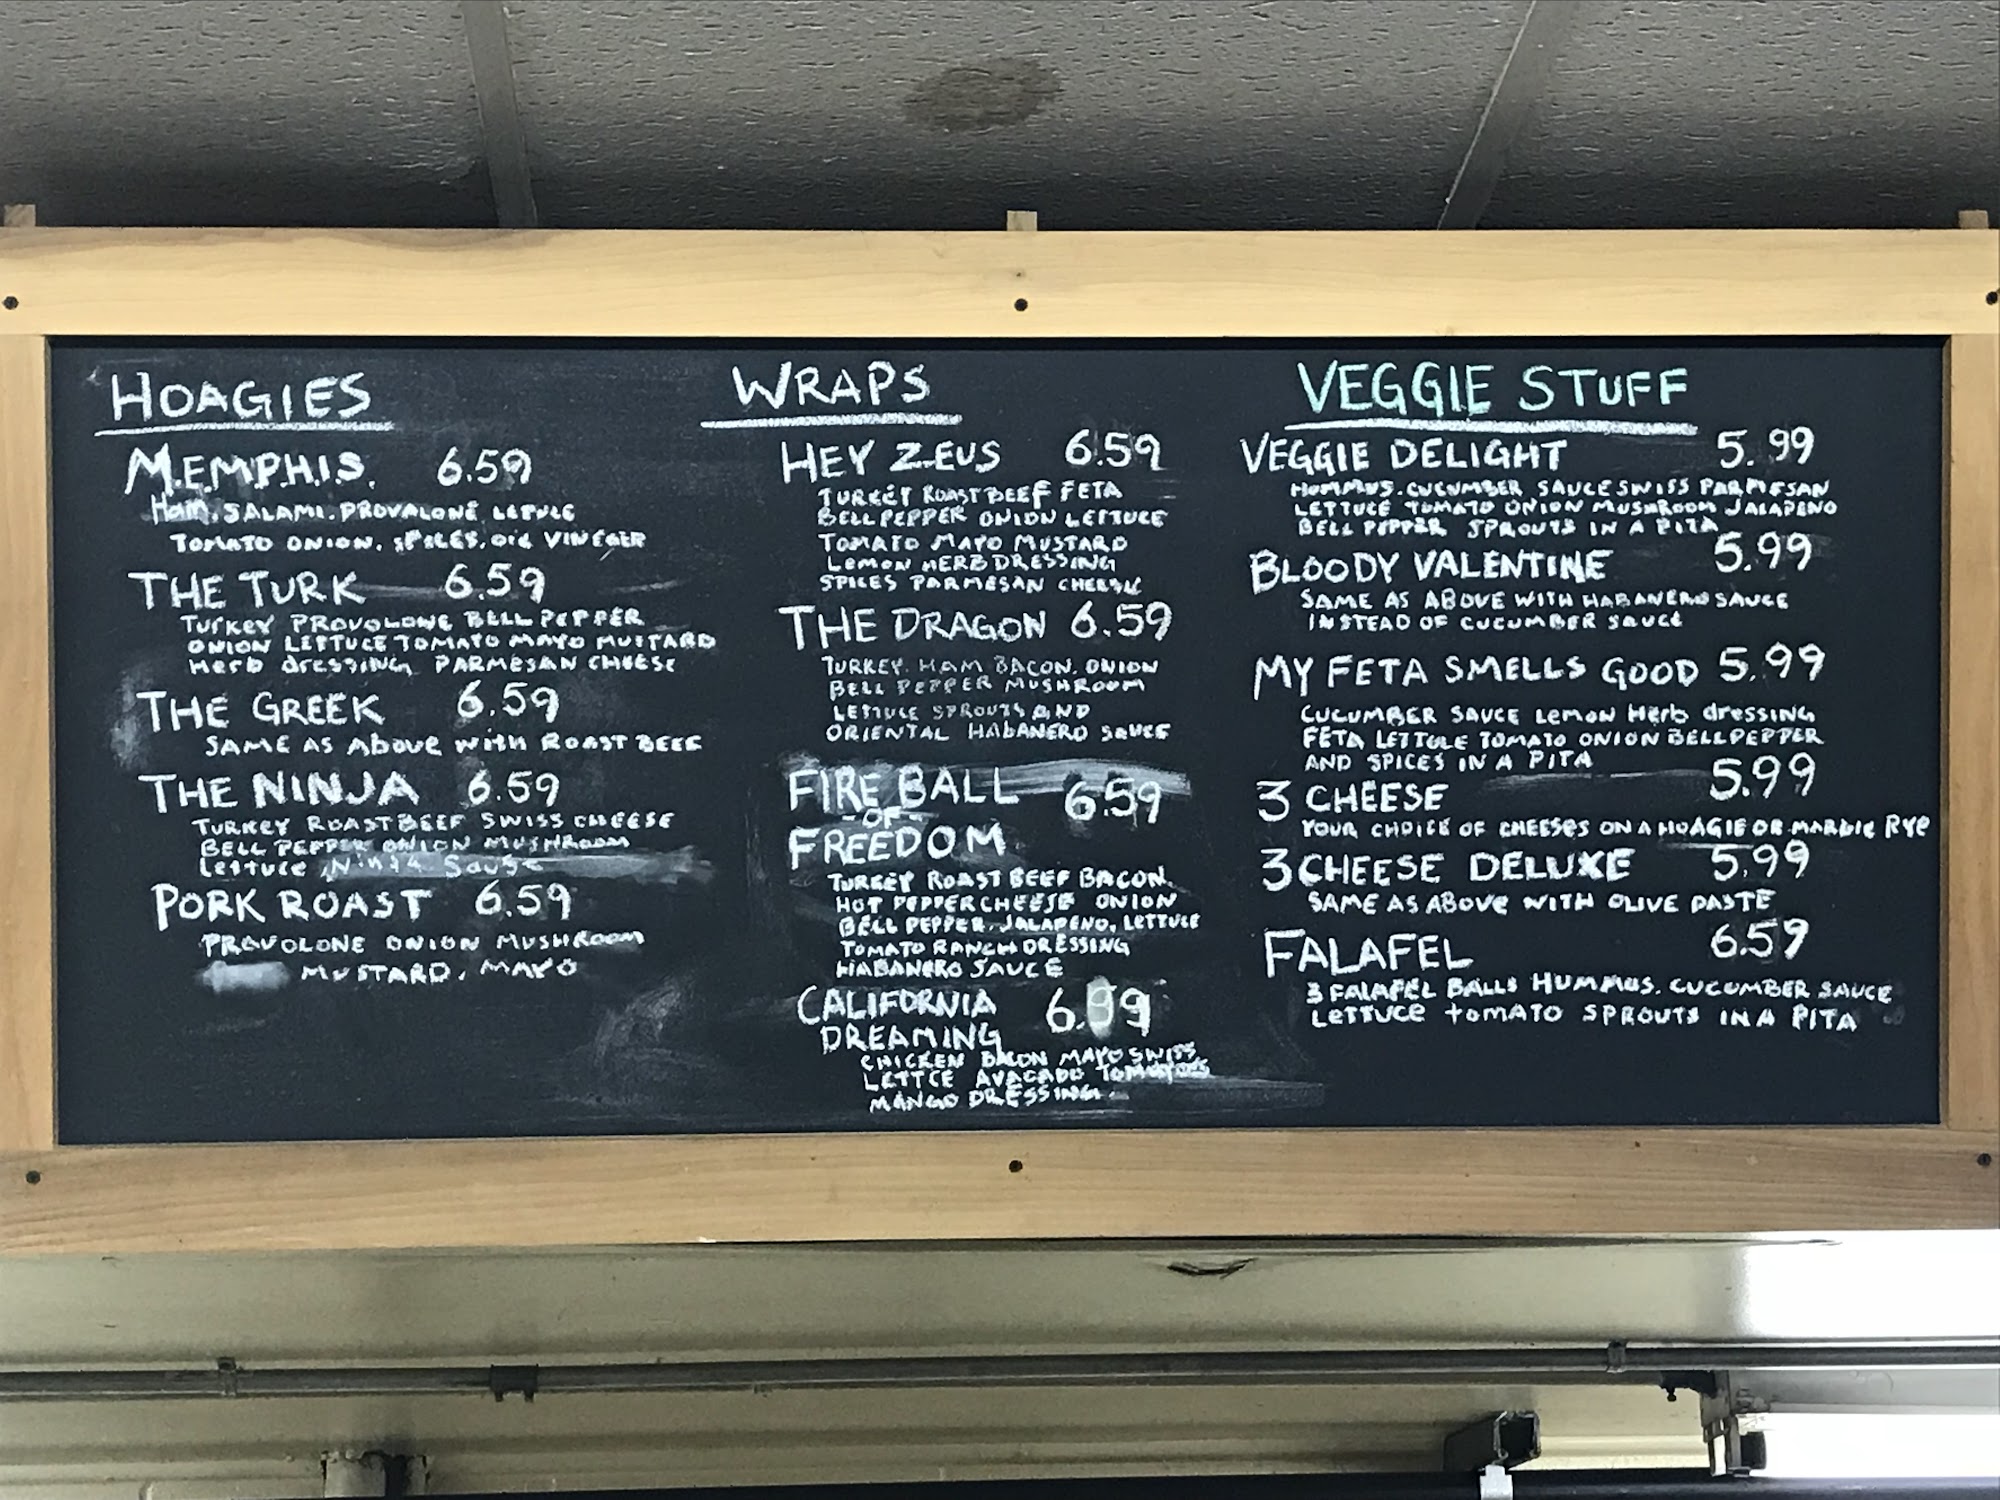 HOAGIES
M.E.M.P.H.I.S. 6.59
Ham. SALAMI. PROVALONE LETTUCE
TOMATO ONION. SPICES. OIL VINEGER
THE TURK 6.59
TURKEY PROVOLONE BELL PEPPER
ONION LETTUCE TOMATO MAYO MUSTARD
Herb dressing PARMESAN CHEESE
THE GREEK 6.59
SAME AS Above with ROAST BEEF
THE NINJA 6.59
TURKEY ROAST BEEF SWISS CHEESE
BELL PEPPER ONION MUSHROOM
Lettuce Ninja Sauce
PORK ROAST 6.59
PROVOLONE ONION MUSHROOM
MUSTARD. MAYO
WRAPS
HEY ZEUS 6.59
TURKEY ROAST BEEF FETA
BELL PEPPER ONION LETTUCE
TOMATO MAYO MUSTARD
LEMON HERB DRESSING
SPICES PARMESAN CHEESE
THE DRAGON 6.59
TURKEY. HAM BACON. ONION
BELL PEPPER MUSHROOM
LETTUCE SPROUTS AND
ORIENTAL HABANERO SAUCE
FIRE BALL 6.59
-OF-
FREEDOM
TURKEY ROAST BEEF BACON.
HOT PEPPER CHEESE ONION
BELL PEPPER. JALAPENO, LETTUCE
TOMATO RANCH DRESSING
HABANERO SAUCE
CALIFORNIA 6.99
DREAMING
CHICKEN BACON MAYO SWISS
LETTCE AVACADO TOMATOES
MANGO DRESSING.
VEGGIE STUFF
VEGGIE DELIGHT 5.99
HUMMUS. CUCUMBER SAUCE SWISS PARMESAN
LETTUCE TOMATO ONION MUSHROOM JALAPENO
BELL PEPPER SPROUTS IN A PITA
BLOODY VALENTINE 5.99
SAME AS ABOVE WITH HABANERO SAUCE
INSTEAD OF CUCUMBER SAUCE
MY FETA SMELLS GOOD 5.99
CUCUMBER SAUCE Lemon Herb dressing
FETA LETTUCE TOMATO ONION BELL PEPPER
AND SPICES IN A PITA
3 CHEESE 5.99
YOUR CHOICE OF CHEESES ON A HOAGIE OR MARBLE Rye
3 CHEESE DELUXE 5.99
SAME AS ABOVE WITH OLIVE PASTE
FALAFEL 6.59
3 FALAFEL BALLS HUMMUS. CUCUMBER SAUCE
LETTUCE tOMATO SPROUTS IN A PITA